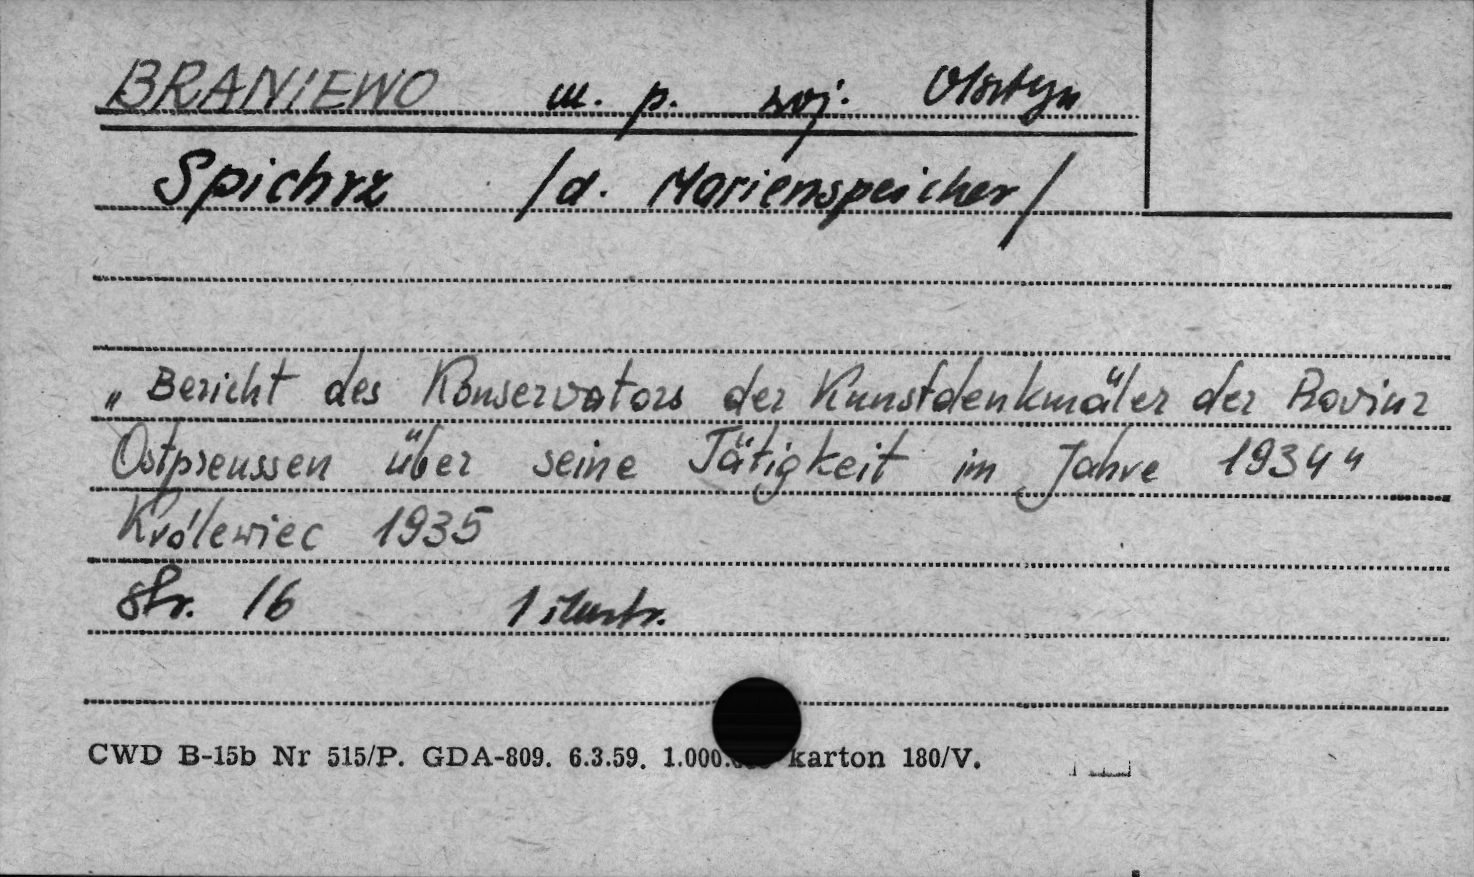 BRANIEWO m. p. woj. Olsztyn
Spichrz /d. Marienspeicher/
„Bericht des Konservators der Kunstdenkmäler der Provinz
Ostpreussen über seine Tätigkeit im Jahre 1934"
Królewiec 1935
Str. 16 1 ilustr.
CWD B-15b Nr 515/P. GDA-809. 6.3.59. 1.000. karton 180/V.